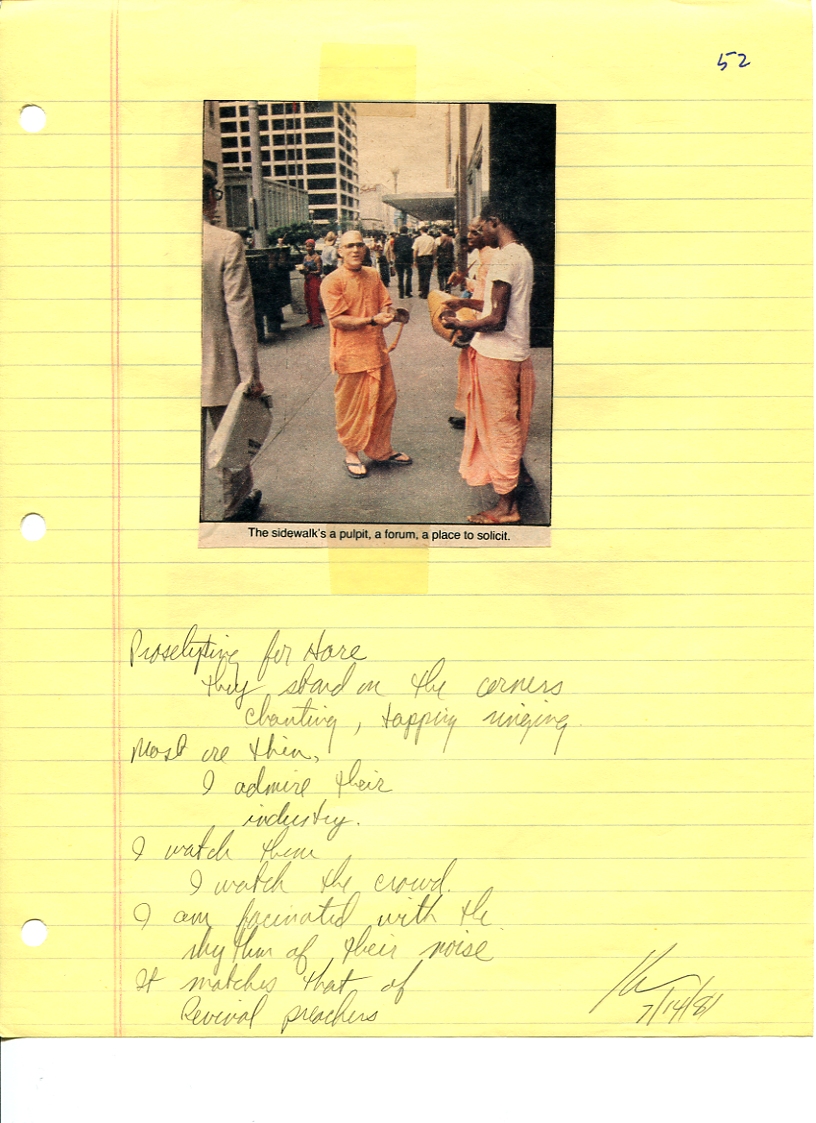 52
The sidewalk's a pulpit, a forum, a place to solicit.
Proselyting for Hare
they stand on the corners
chanting, tapping ringing.
Most are thin,
I admire their
industry.
I watch them
I watch the crowd.
I am facinated with the
rhythm of their noise
It matches that of
Revival preachers
7/14/81